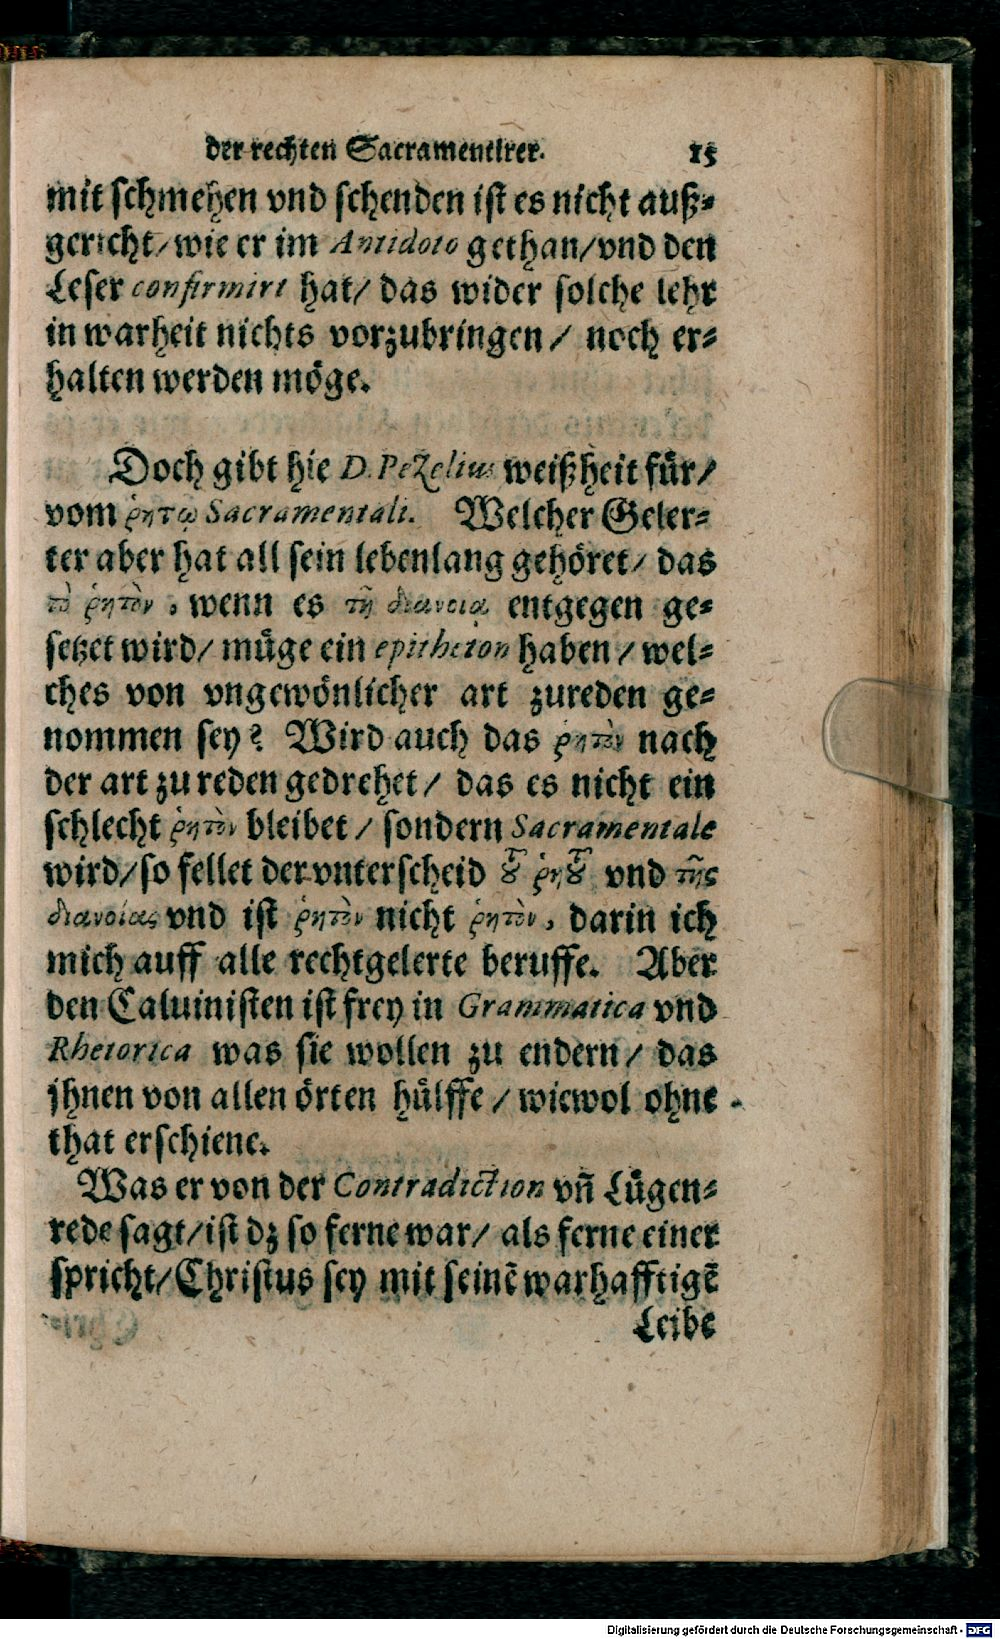 der rechten Sacramentirer. 15
mit schmehen vnd schenden ist es nicht auß-
gericht/ wie er im Antidoto gethan/ vnd den
Leser confirmirt hat/ das wider solche lehr
in warheit nichts vorzubringen/ noch er-
halten werden möge.
Doch gibt hie D. Pezelius weißheit für/
vom ῥητῷ Sacramentali. Welcher Geler-
ter aber hat all sein lebenlang gehöret/ das
τὸ ῥητὸν, wenn es τῇ διανοίᾳ entgegen ge-
setzet wird/ müge ein epitheton haben/ wel-
ches von vngewönlicher art zureden ge-
nommen sey? Wird auch das ῥητὸν nach
der art zu reden gedrehet/ das es nicht ein
schlecht ῥητὸν bleibet/ sondern Sacramentale
wird/ so fellet der vnterscheid τȣ͂ ῥητȣ͂ vnd τῆς
διανοίας vnd ist ῥητὸν nicht ῥητὸν, darin ich
mich auff alle rechtgelerte beruffe. Aber
den Caluinisten ist frey in Grammatica vnd
Rhetorica was sie wollen zu endern/ das
jhnen von allen örten hülffe/ wiewol ohne
that erschiene.
Was er von der Contradiction vñ Lügen-
rede sagt/ ist dz so ferne war/ als ferne einer
spricht/ Christus sey mit seinẽ warhafftigẽ
Leibe
Digitalisierung gefördert durch die Deutsche Forschungsgemeinschaft - DFG